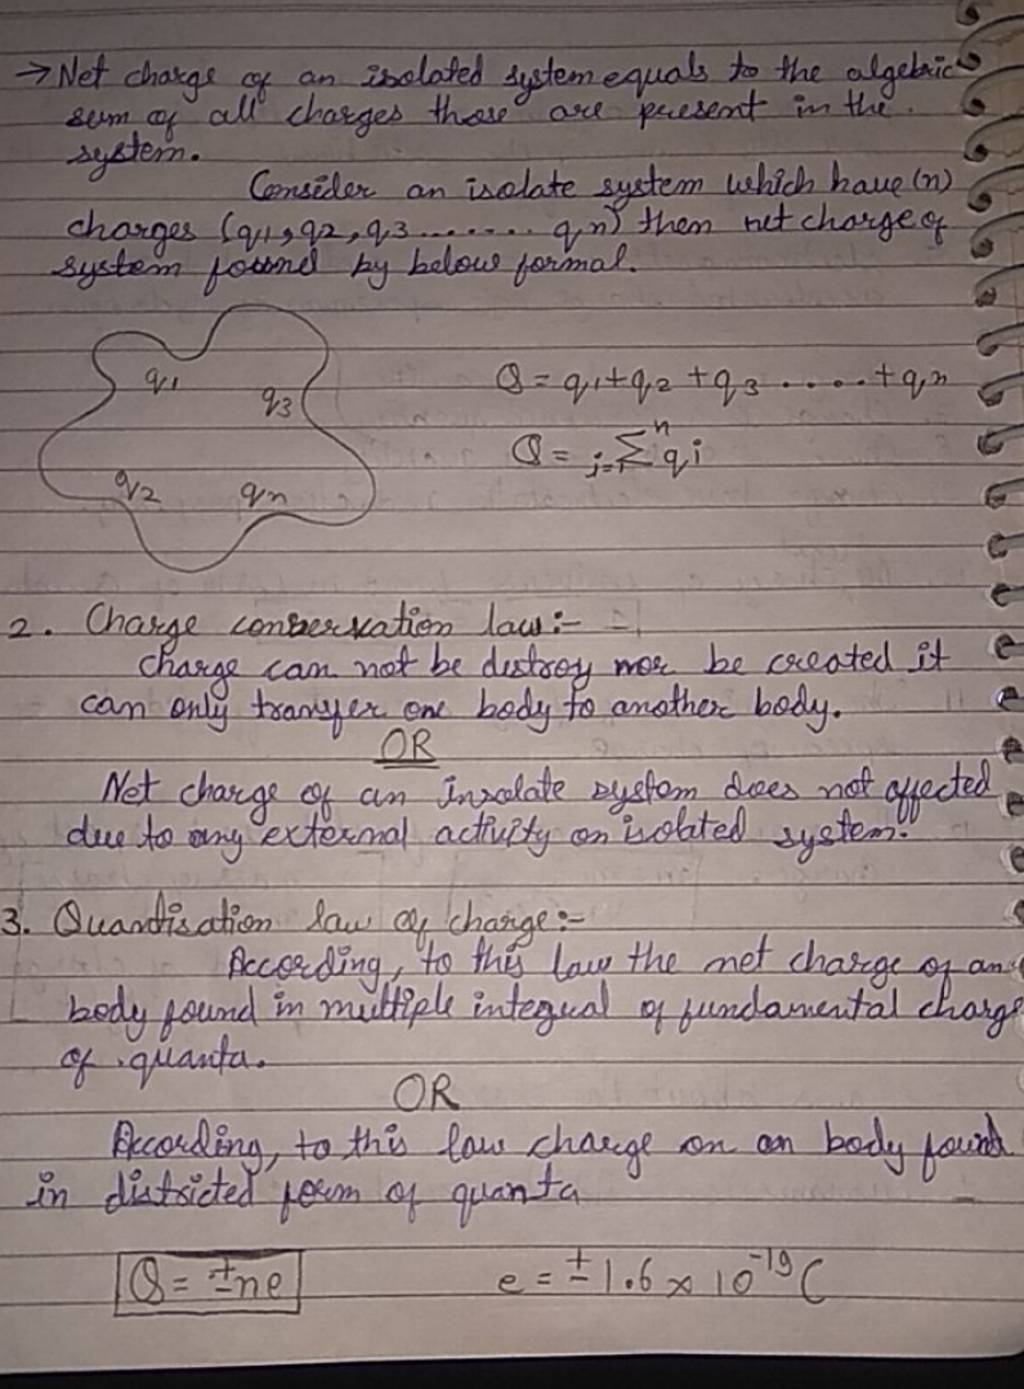 → Net charge of an isolated system equals to the algebric
sum of all charges those are present in the
system.
Consider an isolate system which have (n)
charges (q1, q2, q3 ....... qn) then net charge of
system found by below formal.
q1
q3
q2
qn
Q = q1 + q2 + q3 ..... + qn
Q = i=1 Σ n qi
2. Charge conservation law:-
charge can not be destroy nor be created it
can only transfer one body to another body.
OR
Net charge of an insolate system does not affected
due to any external activity on isolated system.
3. Quantisation law of charge:-
According, to this law the net charge of an
body found in multiple integual of fundamental charge
of quanta.
OR
According, to this law charge on an body found
in districted form of quanta
Q = ±ne
e = ± 1.6 × 10⁻¹⁹ C